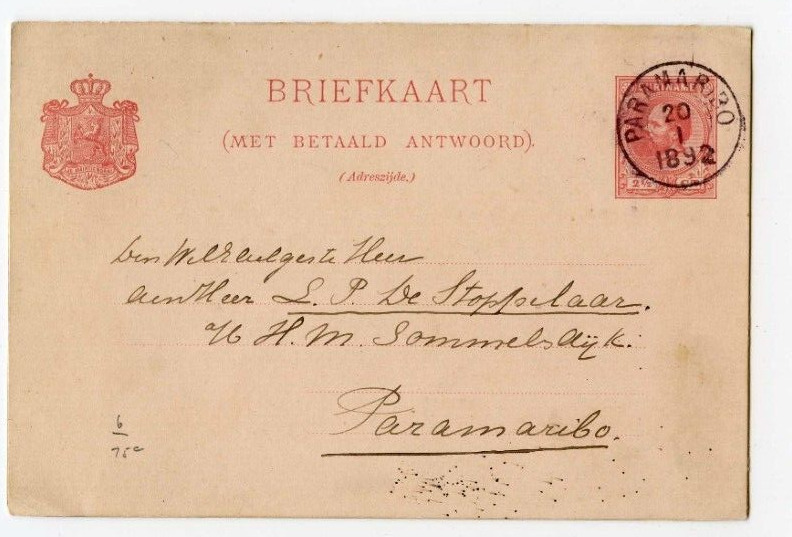 BRIEFKAART
(MET BETAALD ANTWOORD).
(Adreszijde.)
PARAMARIBO
20
1
1892
2½
Den WelEdelgeste Heer
den Heer L. P. De Stoppelaar.
a/b H. M. Sommelsdijk.
Paramaribo.
6
75c